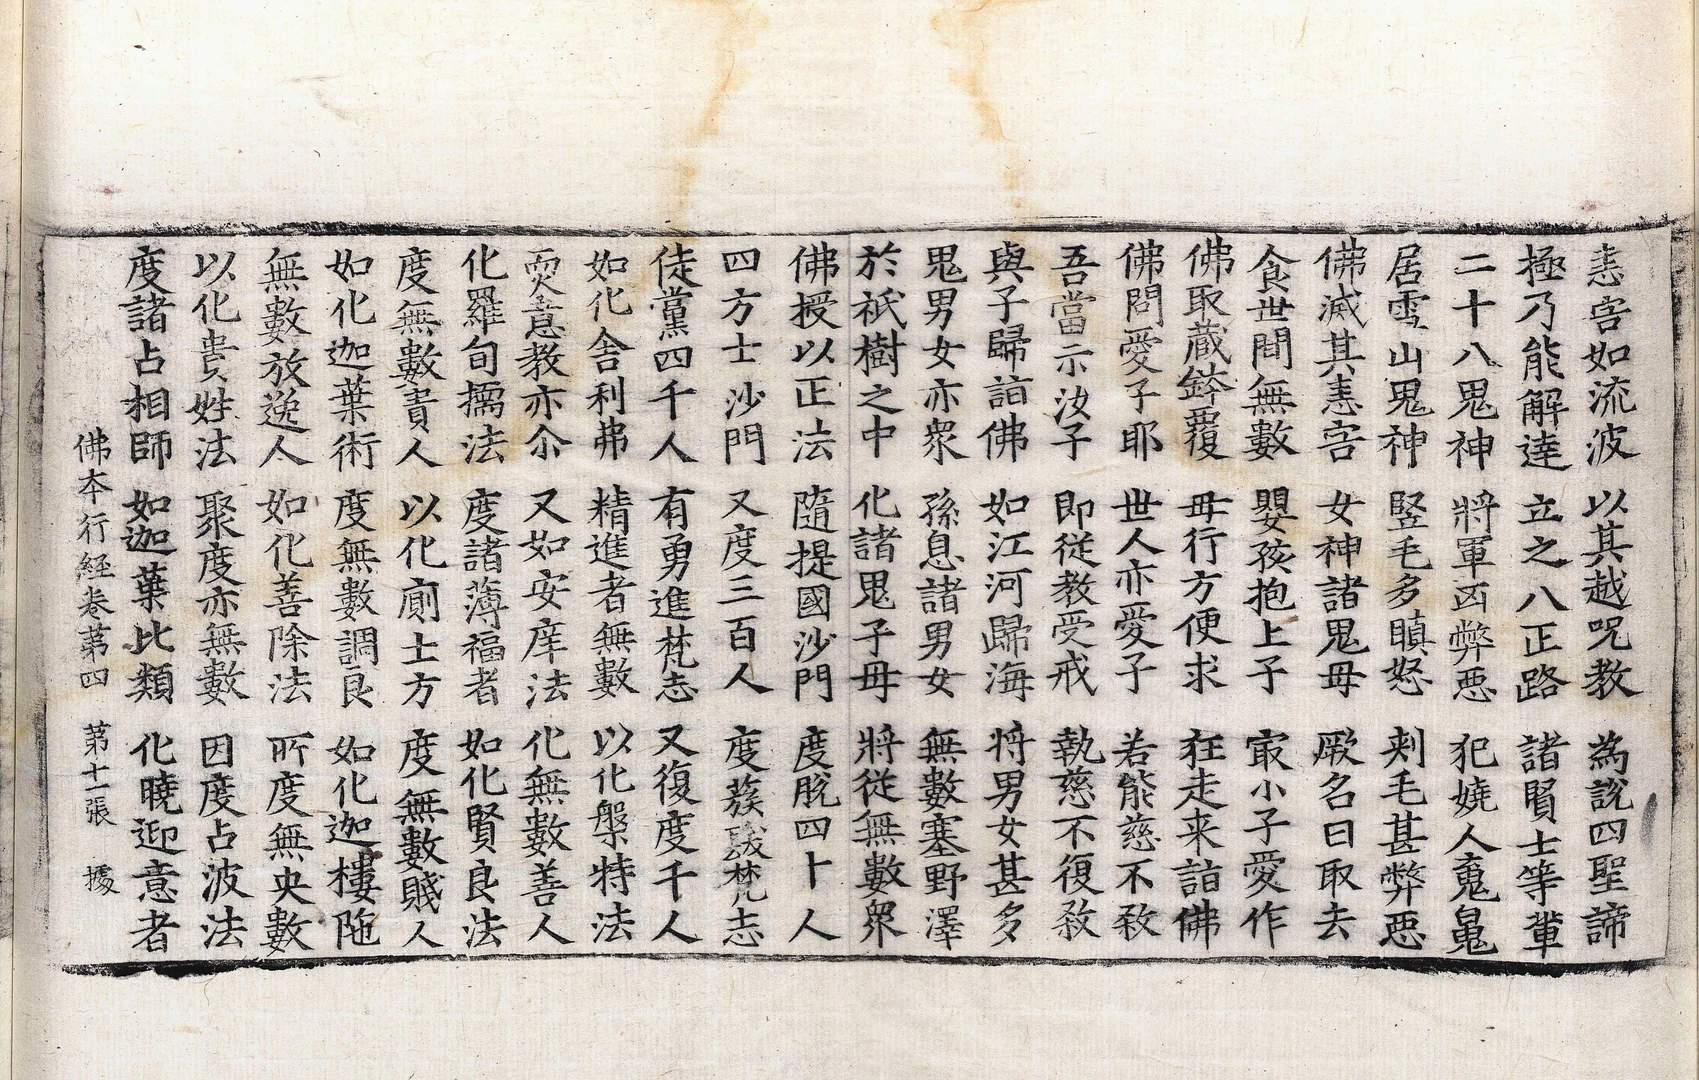 恚害如流波 以其越呪教 為說四聖諦
極乃能解達 立之八正路 諸賢士等輩
二十八鬼神 將軍凶弊惡 犯嬈人鬼
居雪山鬼神 竪毛多瞋怒 刺毛甚弊惡
佛滅其恚害 女神諸鬼母 厥名曰取去
食世間無數 嬰孩抱上子 㝡小子愛作
佛取蔵鉢覆 母行方便求 狂走来詣佛
佛問愛子耶 世人亦愛子 若能慈不煞
吾當示汝子 即從教受戒 執慈不復煞
與子歸詣佛 如江河歸海 將男女甚多
鬼男女亦衆 孫息諸男女 無數塞野澤
於祇樹之中 化諸鬼子母 將從無數衆
佛授以正法 隨提國沙門 度脫四十人
四方士沙門 又度三百人 度蔟梵志
徒黨四千人 有勇進梵志 又復度千人
如化舍利弗 精進者無數 以化槃特法
耎意教亦尒 又如安庠法 化無數善人
化羅旬孺法 度諸薄福者 如化賢良法
度無數貴人 以化廁士方 度無數賤人
如化迦葉術 度無數調良 如化迦樓陁
無數放逸人 如化善除法 所度無央數
以化貴姓法 聚度亦無數 因度占波法
度諸占相師 如迦葉比類 化曉迎意者
佛本行經卷第四 第十一張 據